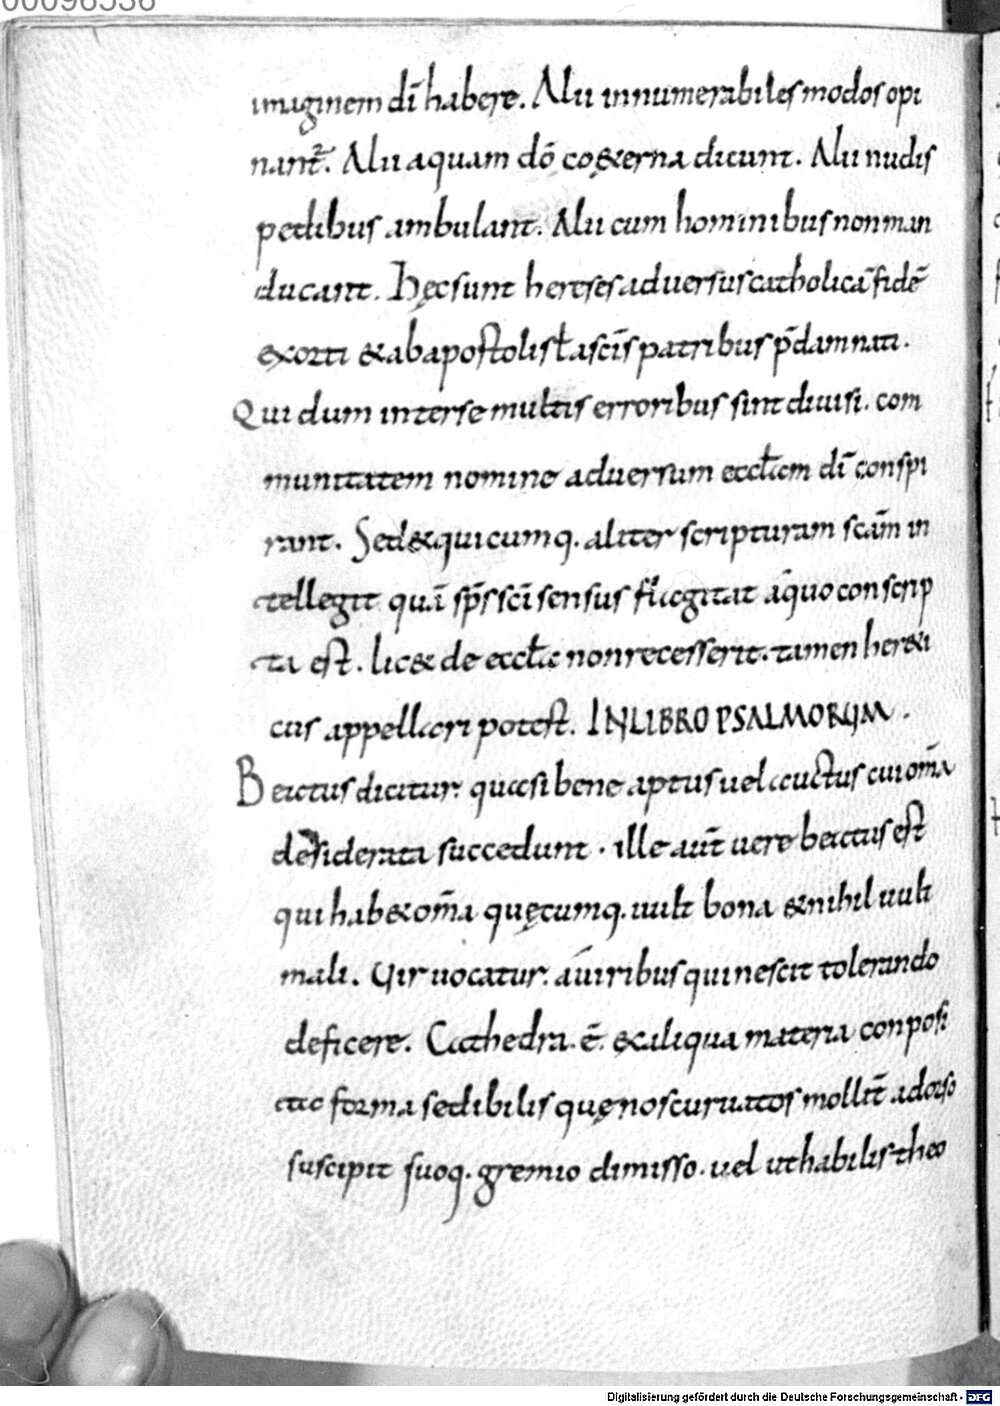 00096536
imaginem dī habere. Alii innumerabiles modos opi
nant᷑. Alii aquam dō co&erna dicunt. Alii nudis
pedibus ambulant. Alii cum hominibus non man
ducant. Hęc sunt hereses adversus catholicā fidē
exorti & ab apostolis ł a scīs patribus p̄damnati.
Qui dum inter se multis erroribus sint divisi. com
muni tatem nomine adversum eccłam dī conspi
rant. Sed & quicumq. aliter scripturam scām in
tellegit quā sp̄s scī sensus flagitat a quo conscrip
ta est. lic& de eccła non recesserit. tamen her&i
cus appellari potest. IN LIBRO PSALMORUM.
Beatus dicitur. quasi bene aptus vel auctus cui om̄a
desiderata succedunt. ille aut̄ vere beatus est
qui hab& om̄a quęcumq. vult bona & nihil vult
mali. Vir vocatur. a viribus qui nescit tolerando
deficere. Cathedra. ē. ex aliqua materia conposi
tae forma sedibilis quę nos curvatos mollit̄ a dorso
suscipit suoq. gremio dimisso. vel ut habilis theo
Digitalisierung gefördert durch die Deutsche Forschungsgemeinschaft - DFG